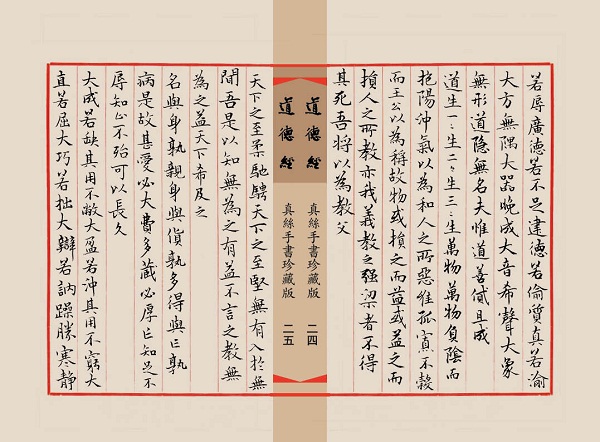 若辱廣德若不足建德若偷質真若渝
大方無隅大器晚成大音希聲大象
無形道隱無名夫惟道善貸且成
道生一〻生二〻生三〻生萬物萬物負陰而
抱陽沖氣以為和人之所惡惟孤寡不穀
而王公以為稱故物或損之而益或益之而
損人之所教亦我義教之强梁者不得
其死吾將以為教父
道德經
真絲手書珍藏版
二四
道德經
真絲手書珍藏版
二五
天下之至柔馳騁天下之至堅無有入於無
間吾是以知無為之有益不言之教無
為之益天下希及之
名與身孰親身與貨孰多得與亡孰
病是故甚愛必大費多藏必厚亡知足不
辱知止不殆可以長久
大成若缺其用不敝大盈若沖其用不窮大
直若屈大巧若拙大辯若訥躁勝寒靜